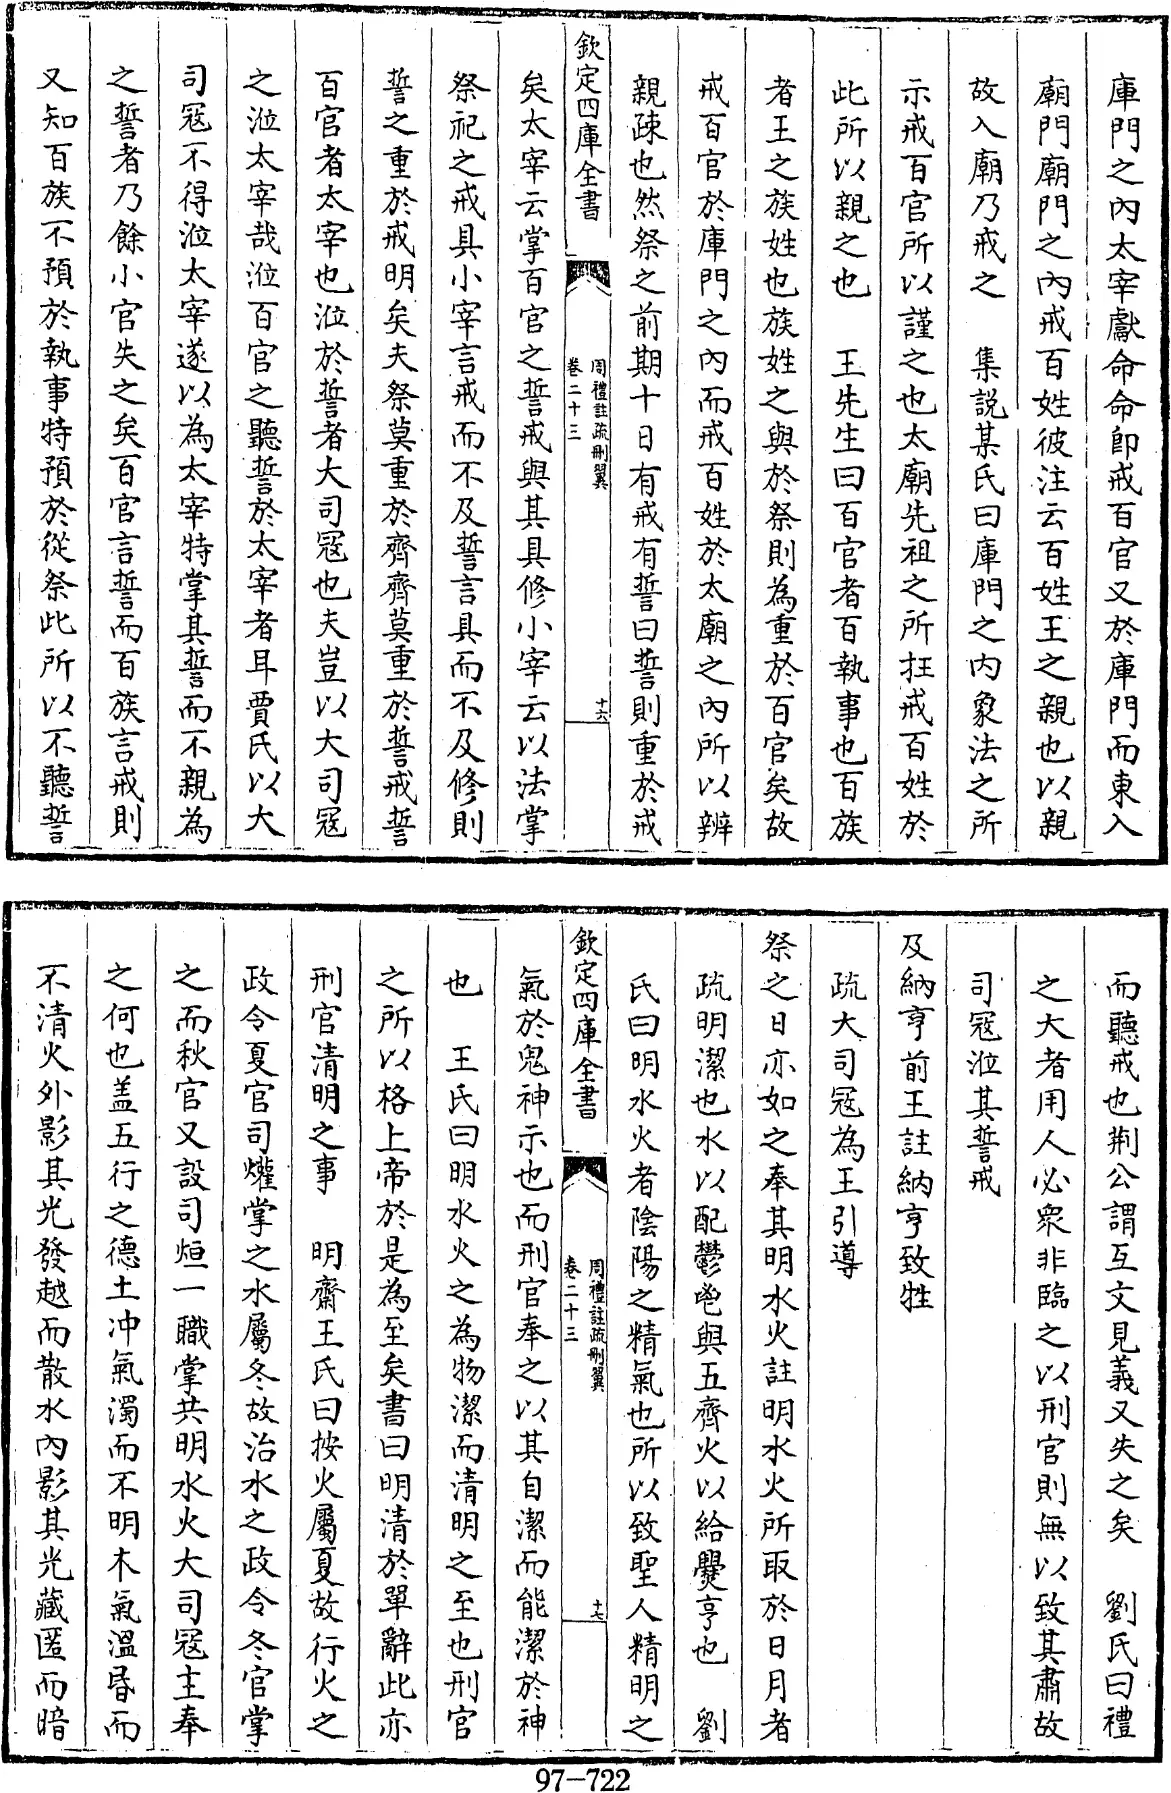 庫門之內太宰獻命命即戒百官又於庫門而東入
廟門廟門之內戒百姓彼注云百姓王之親也以親
故入廟乃戒之　集説某氏曰庫門之內象法之所
示戒百官所以謹之也太廟先祖之所在戒百姓於
此所以親之也　王先生曰百官者百執事也百族
者王之族姓也族姓之與於祭則為重於百官矣故
戒百官於庫門之內而戒百姓於太廟之內所以辨
親疎也然祭之前期十日有戒有誓曰誓則重於戒
欽定四庫全書
周禮註疏刪翼
卷二十三
十六
矣太宰云掌百官之誓戒與其具修小宰云以法掌
祭祀之戒具小宰言戒而不及誓言具而不及修則
誓之重於戒明矣夫祭莫重於齊齊莫重於誓戒誓
百官者太宰也涖於誓者大司冦也夫豈以大司冦
之涖太宰哉涖百官之聽誓於太宰者耳賈氏以大
司冦不得涖太宰遂以為太宰特掌其誓而不親為
之誓者乃餘小官失之矣百官言誓而百族言戒則
又知百族不預於執事特預於從祭此所以不聽誓
而聽戒也荆公謂互文見義又失之矣　劉氏曰禮
之大者用人必衆非臨之以刑官則無以致其肅故
司冦涖其誓戒
及納亨前王註納亨致牲
疏大司冦為王引導
祭之日亦如之奉其明水火註明水火所取於日月者
疏明潔也水以配鬱鬯與五齊火以給爨亨也　劉
氏曰明水火者陰陽之精氣也所以致聖人精明之
欽定四庫全書
周禮註疏刪翼
卷二十三
十七
氣於鬼神示也而刑官奉之以其自潔而能潔於神
也　王氏曰明水火之為物潔而清明之至也刑官
之所以格上帝於是為至矣書曰明清於單辭此亦
刑官清明之事　明齋王氏曰按火屬夏故行火之
政令夏官司爟掌之水屬冬故治水之政令冬官掌
之而秋官又設司烜一職掌共明水火大司冦主奉
之何也盖五行之德土冲氣濁而不明木氣溫昏而
不清火外影其光發越而散水內影其光藏匿而暗
97-722